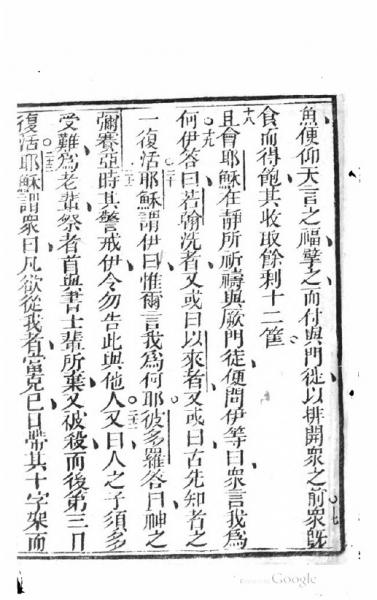 魚便仰天言之福擘之而付與門徒以排開衆之前衆旣
十七
食而得飽其收取餘剩十二筐
十八
且會耶穌在靜所祈禱與厥門徒便問伊等曰衆言我爲
十九
何伊答曰若翰洗者又或曰以來者又或曰古先知者之
二十
一復活耶穌謂伊曰惟爾言我爲何耶彼多羅答曰神之
二十一
彌賽亞時其警戒伊令勿告此與他人又曰人之子須多
二十二
受難爲老輩祭者首與書士輩所棄又被殺而後第三日
二十三
復活耶穌謂衆曰凡欲從我者宜克己日帶其十字架而
Google